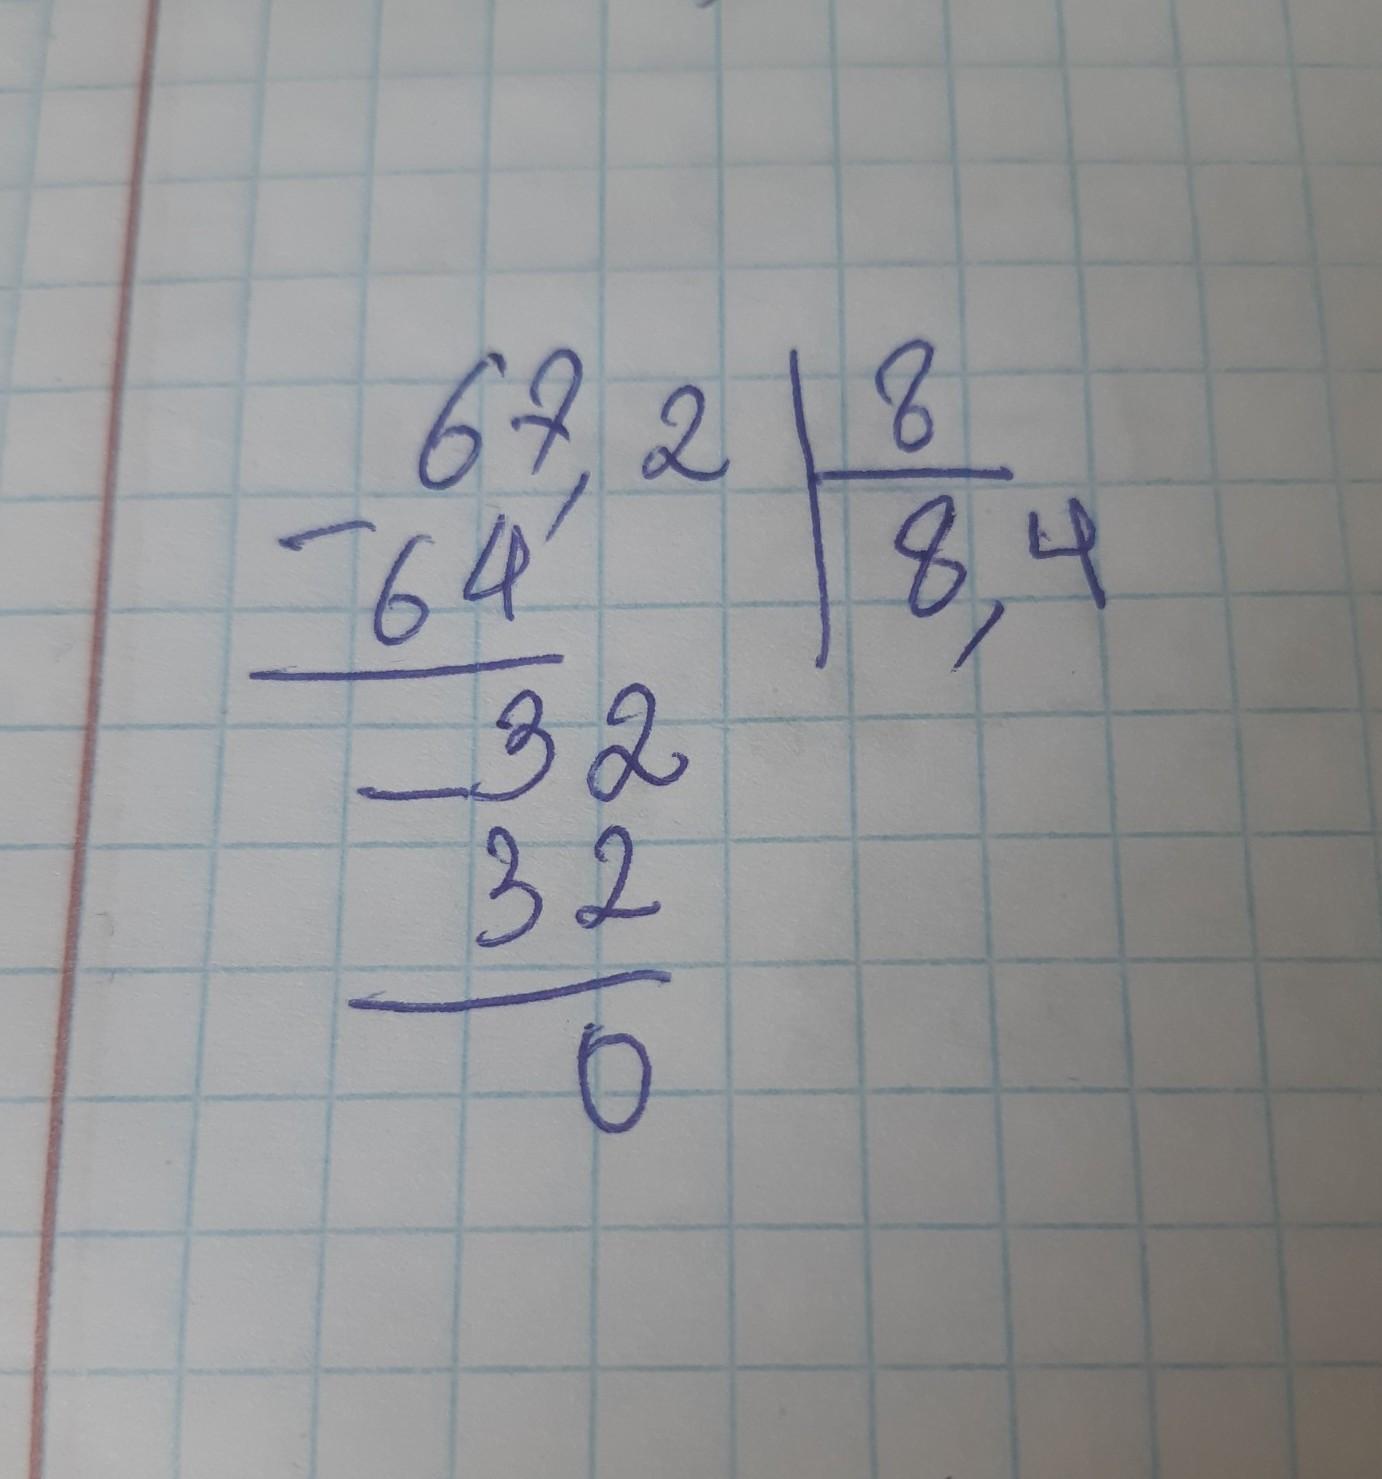 67,2 | 8
- 64 | 8,4
- 32
32
0